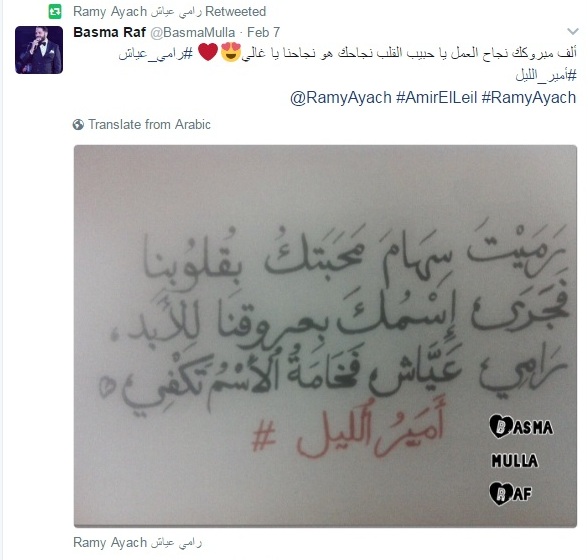 Ramy Ayach رامي عياش Retweeted
Basma Raf @BasmaMulla · Feb 7
ألف مبروكك نجاح العمل يا حبيب القلب نجاحك هو نجاحنا يا غالي😍❤ #رامي_عياش
#أمير_الليل
@RamyAyach #AmirElLeil #RamyAyach
Translate from Arabic
رَمَيْتَ سِهَامَ مَحَبَتكُ بِقُلُوبِنا
فَجَرَى إسْمُكَ بعروقنا للأبد،
رَامِي عَيَّاش فَخَامَةُ الأسْمُ تَكْفِي
أَمَيرُ الليل #
BASMA
MULLA
RAF
Ramy Ayach رامي عياش